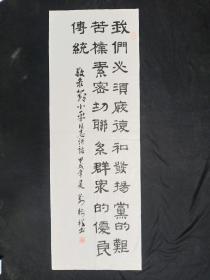 我們必須恢復和發揚黨的艱
苦樸素密切聯系群眾的優良
傳統
敬录邓小平同志讲话 甲戌年夏